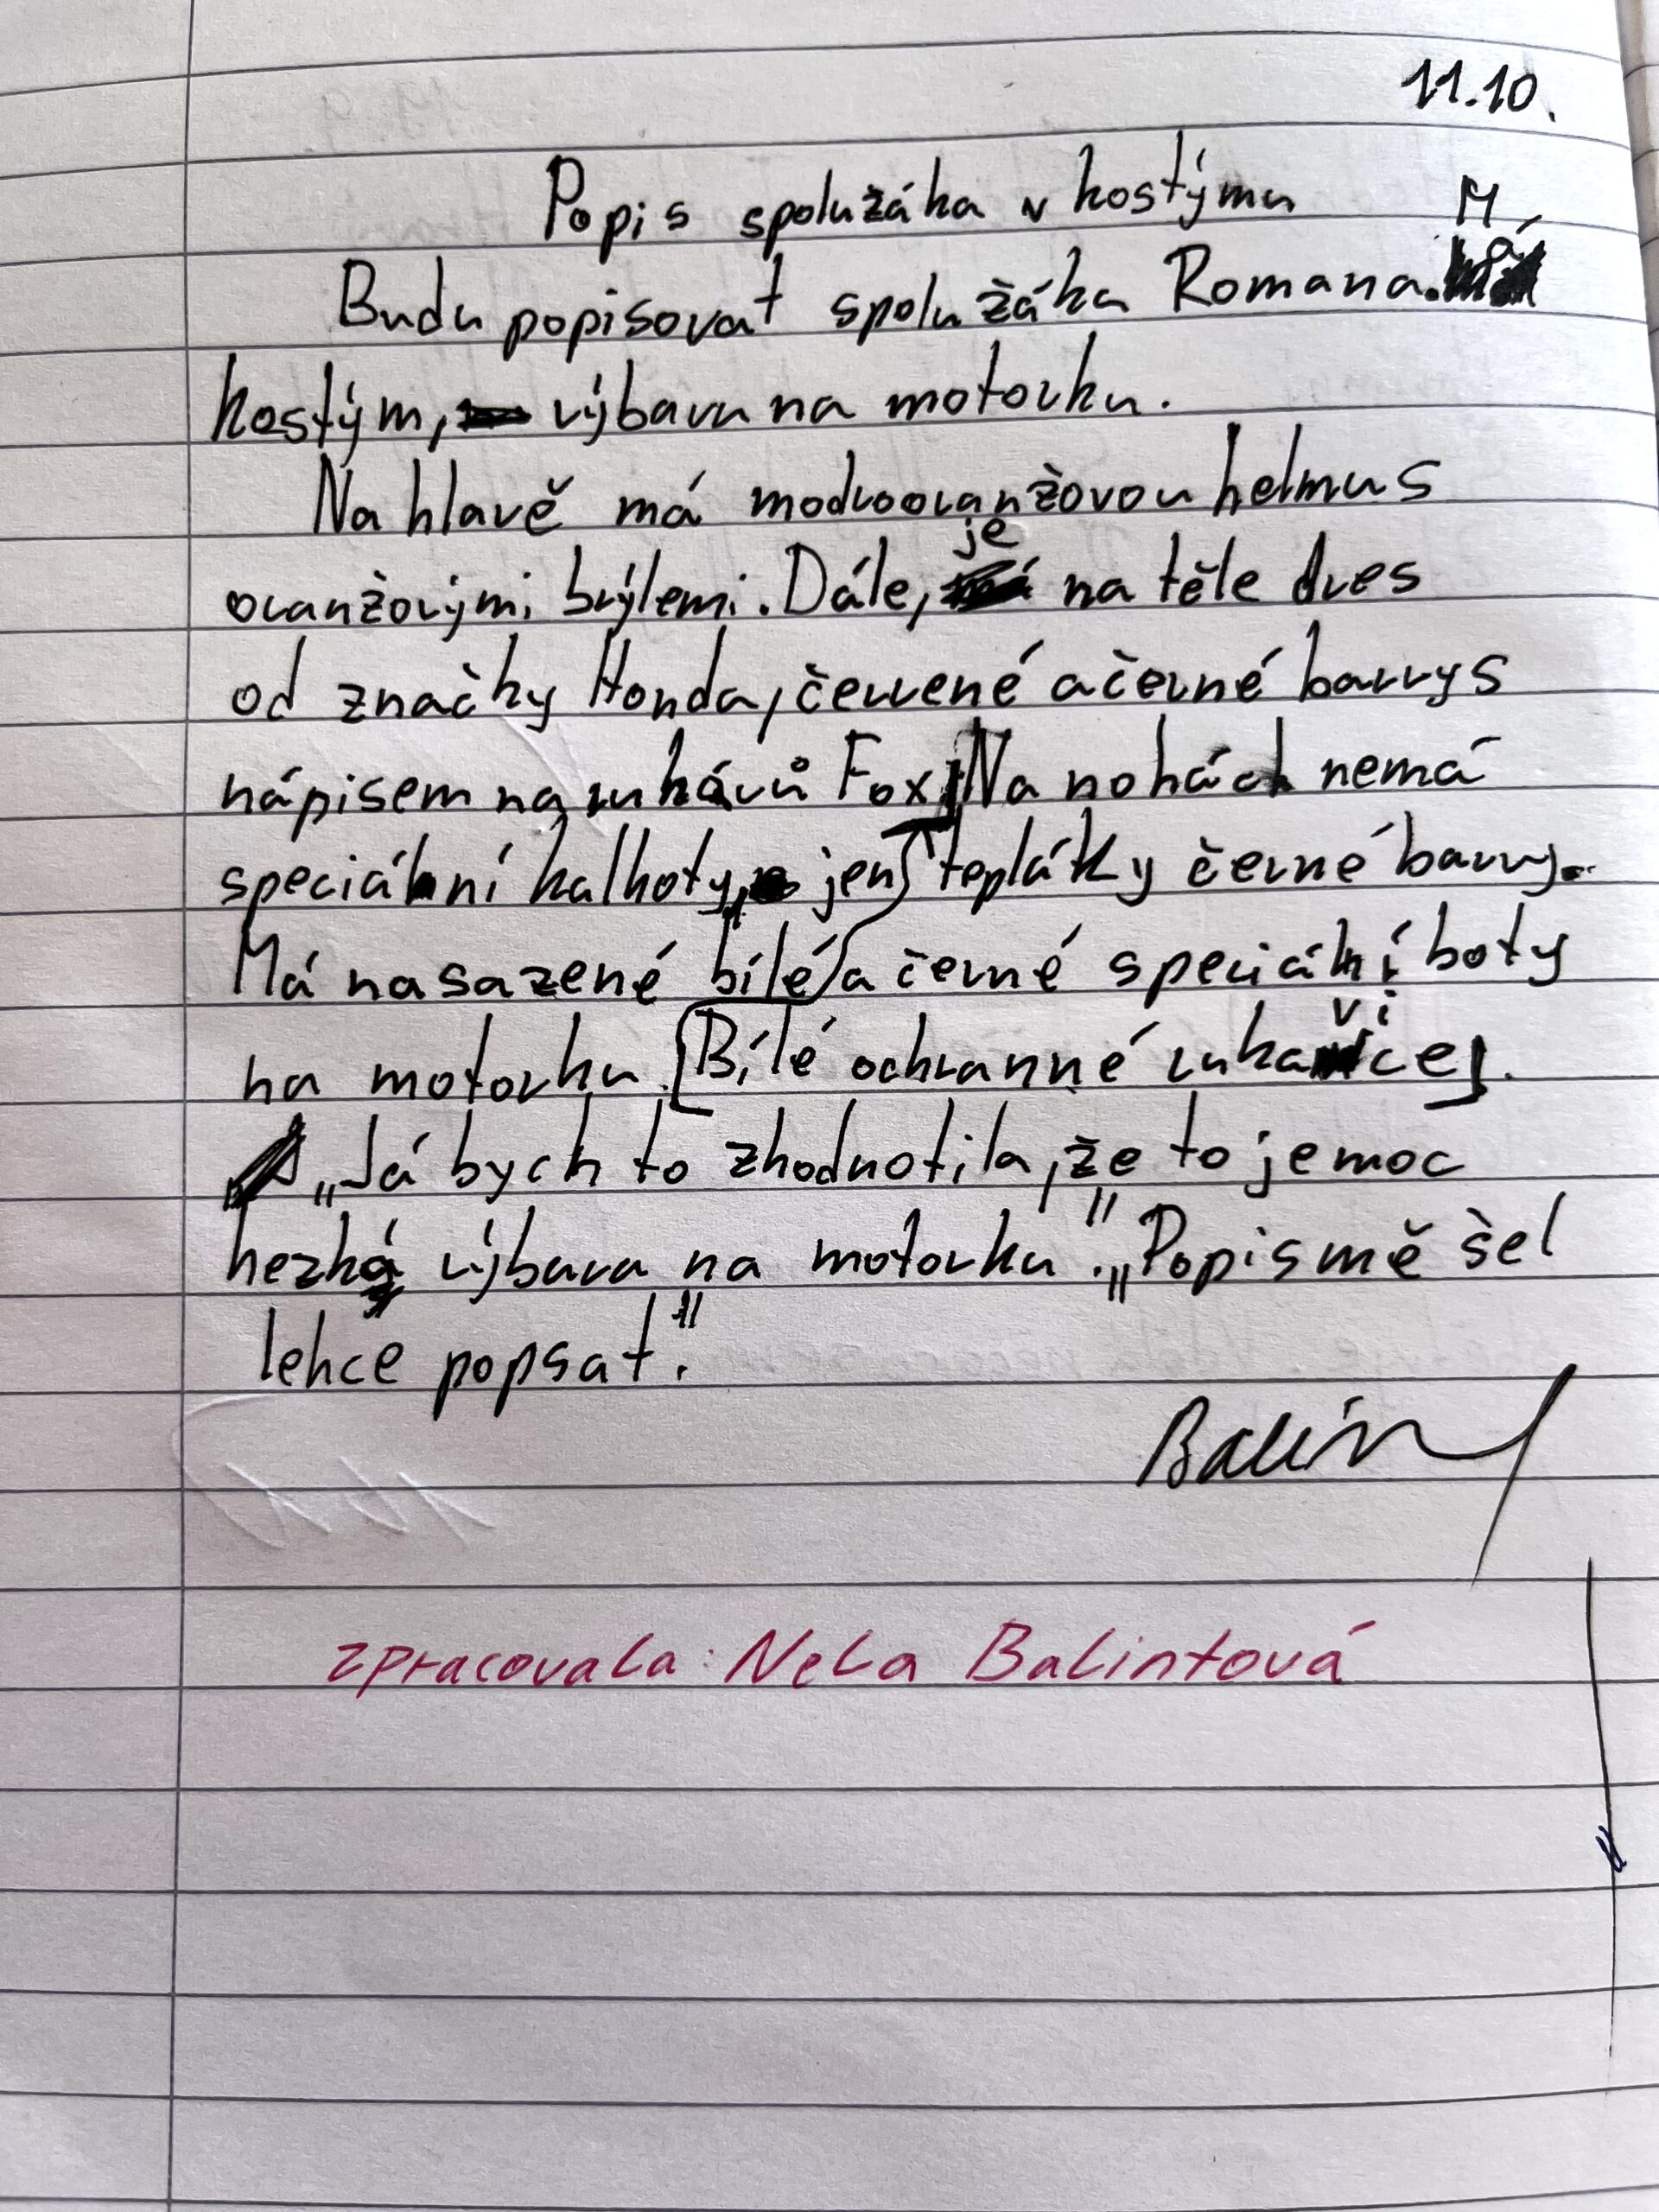 11.10.
Popis spolužáka v kostýmu
Budu popisovat spolužáka Romana. Má
kostým, výbavu na motorku.
Na hlavě má modrooranžovou helmu s
oranžovými brýlemi. Dále, je na těle dres
od značky Honda, červené a černé barvy s
nápisem na rukávů Fox. Na nohách nemá
speciální kalhoty, jen tepláky černé barvy.
Má nasazené bílé a černé speciální boty
na motorku. [Bílé ochranné rukavice].
„Já bych to zhodnotila, že to je moc
hezká výbava na motorku." „Popis mě šel
lehce popsat."
Balin
zpracovala: Nela Balintová